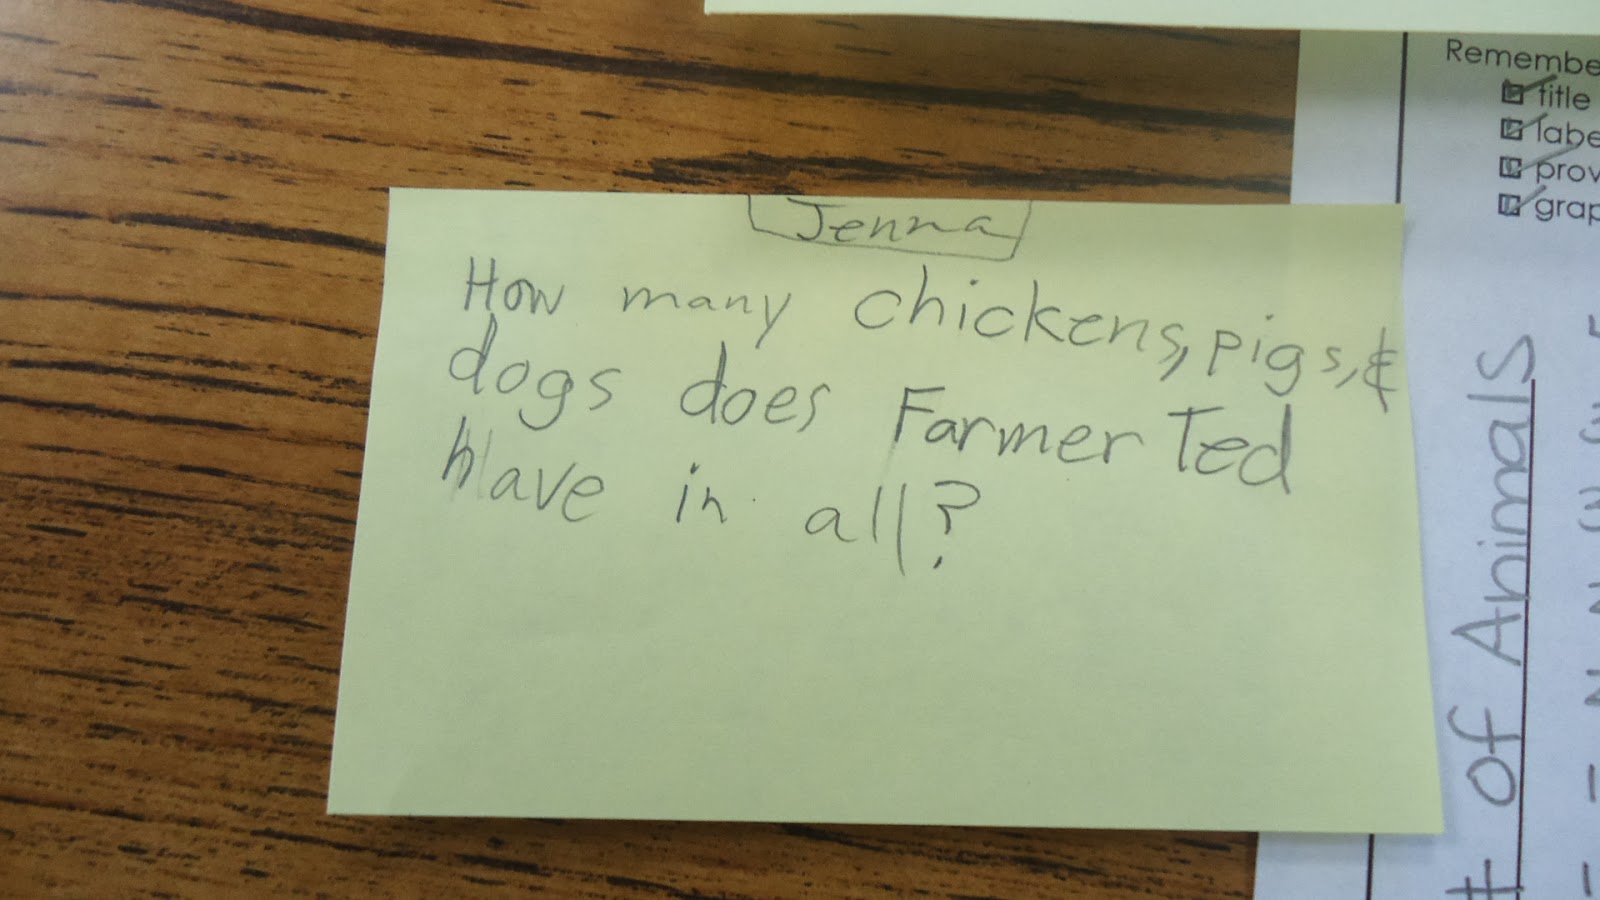 Jenna
How many chickens, pigs, &
dogs does Farmer Ted
have in all?
Remembe
title
labe
prov
grap
# of Animals